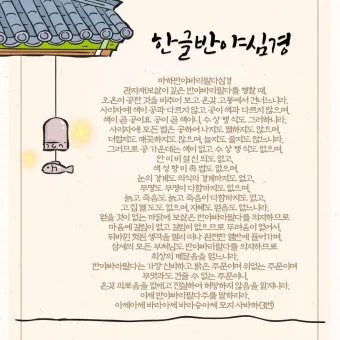 한글반야심경
마하반야바라밀다심경
관자재보살이 깊은 반야바라밀다를 행할 때,
오온이 공한 것을 비추어 보고 온갖 고통에서 건너느니라.
사리자여! 색이 공과 다르지 않고 공이 색과 다르지 않으며,
색이 곧 공이요 공이 곧 색이니, 수 상 행 식도 그러하니라.
사리자여! 모든 법은 공하여 나지도 멸하지도 않으며,
더럽지도 깨끗하지도 않으며, 늘지도 줄지도 않느니라.
그러므로 공 가운데는 색이 없고 수 상 행 식도 없으며,
안 이 비 설 신 의도 없고,
색 성 향 미 촉 법도 없으며,
눈의 경계도 의식의 경계까지도 없고,
무명도 무명이 다함까지도 없으며,
늙고 죽음도 늙고 죽음이 다함까지도 없고,
고 집 멸 도도 없으며, 지혜도 얻음도 없느니라.
얻을 것이 없는 까닭에 보살은 반야바라밀다를 의지하므로
마음에 걸림이 없고 걸림이 없으므로 두려움이 없어서,
뒤바뀐 헛된 생각을 멀리 떠나 완전한 열반에 들어가며,
삼세의 모든 부처님도 반야바라밀다를 의지하므로
최상의 깨달음을 얻느니라.
반야바라밀다는 가장 신비하고 밝은 주문이며 위없는 주문이며
무엇과도 견줄 수 없는 주문이니,
온갖 괴로움을 없애고 진실하여 허망하지 않음을 알지니라.
이제 반야바라밀다주를 말하리라.
아제아제 바라아제 바라승아제 모지 사바하(3번)